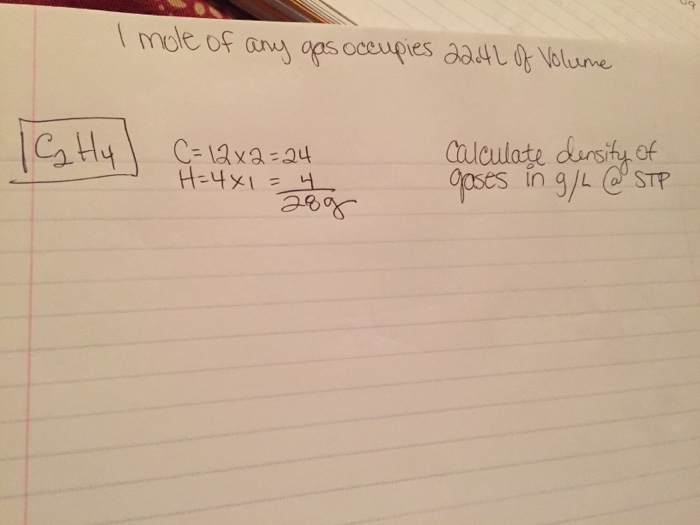 1 mole of any gas occupies 22.4L of Volume
C₂H₄
C=12x2=24
H=4x1 = 4
28g
Calculate density of
gases in g/L @ STP